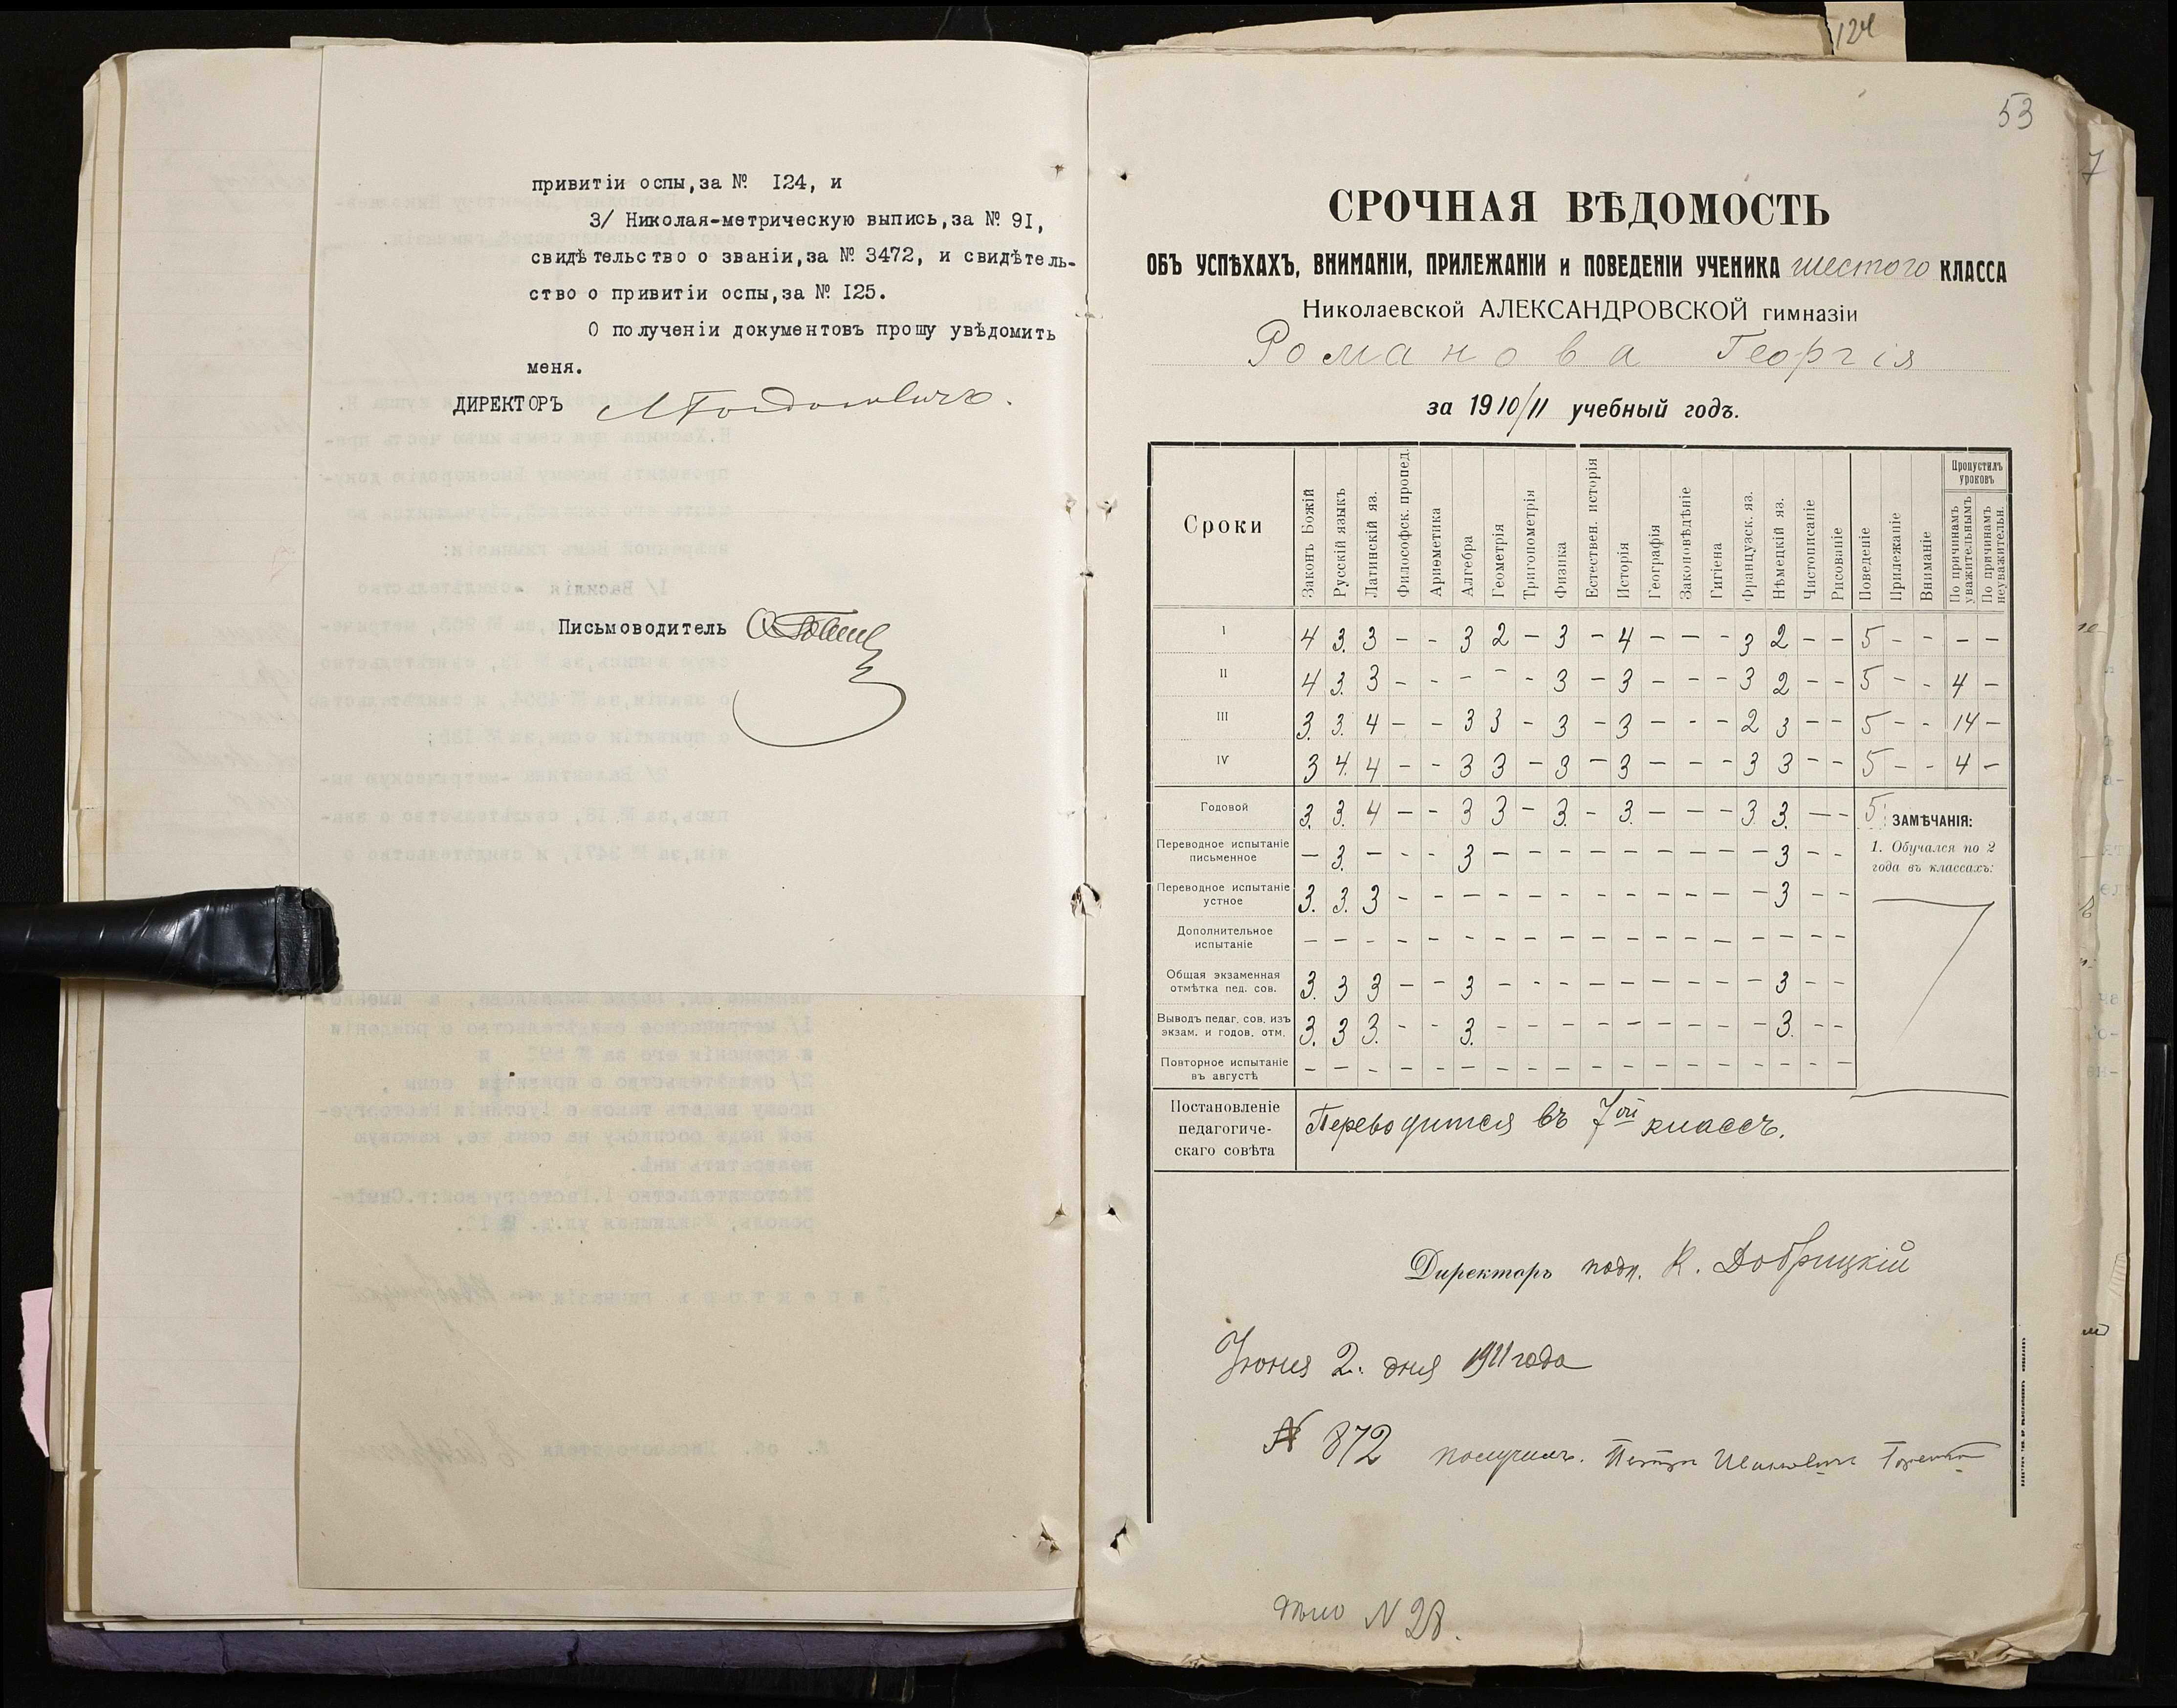 привитіи оспы,за № I24, и
3/ Николая-метрическую выпись,за № 9I,
свидѣтельство о званіи,за № 3472, и свидѣтель-
ство о привитіи оспы,за № I25.
О полученіи документовъ прошу увѣдомить
меня.
ДИРЕКТОРЪ
Письмоводитель
124
53
7
СРОЧНАЯ ВѢДОМОСТЬ
ОБЪ УСПѢХАХЪ, ВНИМАНІИ, ПРИЛЕЖАНІИ и ПОВЕДЕНІИ УЧЕНИКА шестого КЛАССА
Николаевской АЛЕКСАНДРОВСКОЙ гимназіи
Романова Георгія
за 1910/11 учебный годъ.
Сроки Законъ Божій Русскій языкъ Латинскій яз. Философск. пропед. Ариѳметика Алгебра Геометрія Тригонометрія Физика Естествен. исторія Исторія Географія Законовѣдѣніе Гигіена Французск. яз. Нѣмецкій яз. Чистописаніе Рисованіе Поведеніе Прилежаніе Вниманіе Пропустилъ уроковъ По причинамъ уважительнымъ По причинамъ неуважительн.
I 4 3. 3 - - 3 2 - 3 - 4 - - - 3 2 - - 5 - - - -
II 4 3. 3 - - - - - 3 - 3 - - - 3 2 - - 5 - - 4 -
III 3. 3. 4 - - 3 3 - 3 - 3 - - - 2 3 - - 5 - - 14 -
IV 3 4. 4 - - 3 3 - 3 - 3 - - - 3 3 - - 5 - - 4 -
Годовой 3. 3. 4 - - 3 3 - 3. - 3. - - - 3. 3. - - 5.
ЗАМѢЧАНІЯ:
1. Обучался по 2
года въ классахъ:
Переводное испытаніе письменное - 3. - - - 3 - - - - - - - - - 3 - -
Переводное испытаніе устное 3. 3. 3 - - - - - - - - - - - - 3 - -
Дополнительное испытаніе - - - - - - - - - - - - - - - - - -
Общая экзаменная отмѣтка пед. сов. 3. 3 3 - - 3 - - - - - - - - - 3 - -
Выводъ педаг. сов. изъ экзам. и годов. отм. 3. 3 3. - - 3. - - - - - - - - - 3. - -
Повторное испытаніе въ августѣ - - - - - - - - - - - - - - - - - -
Постановленіе педагогиче-скаго совѣта Переводится въ 7ой классъ.
Директоръ подп. К. Добрицкій
Іюня 2. дня 1911 года
№ 872 получилъ. Петръ Ивановичъ
дѣло N 28.